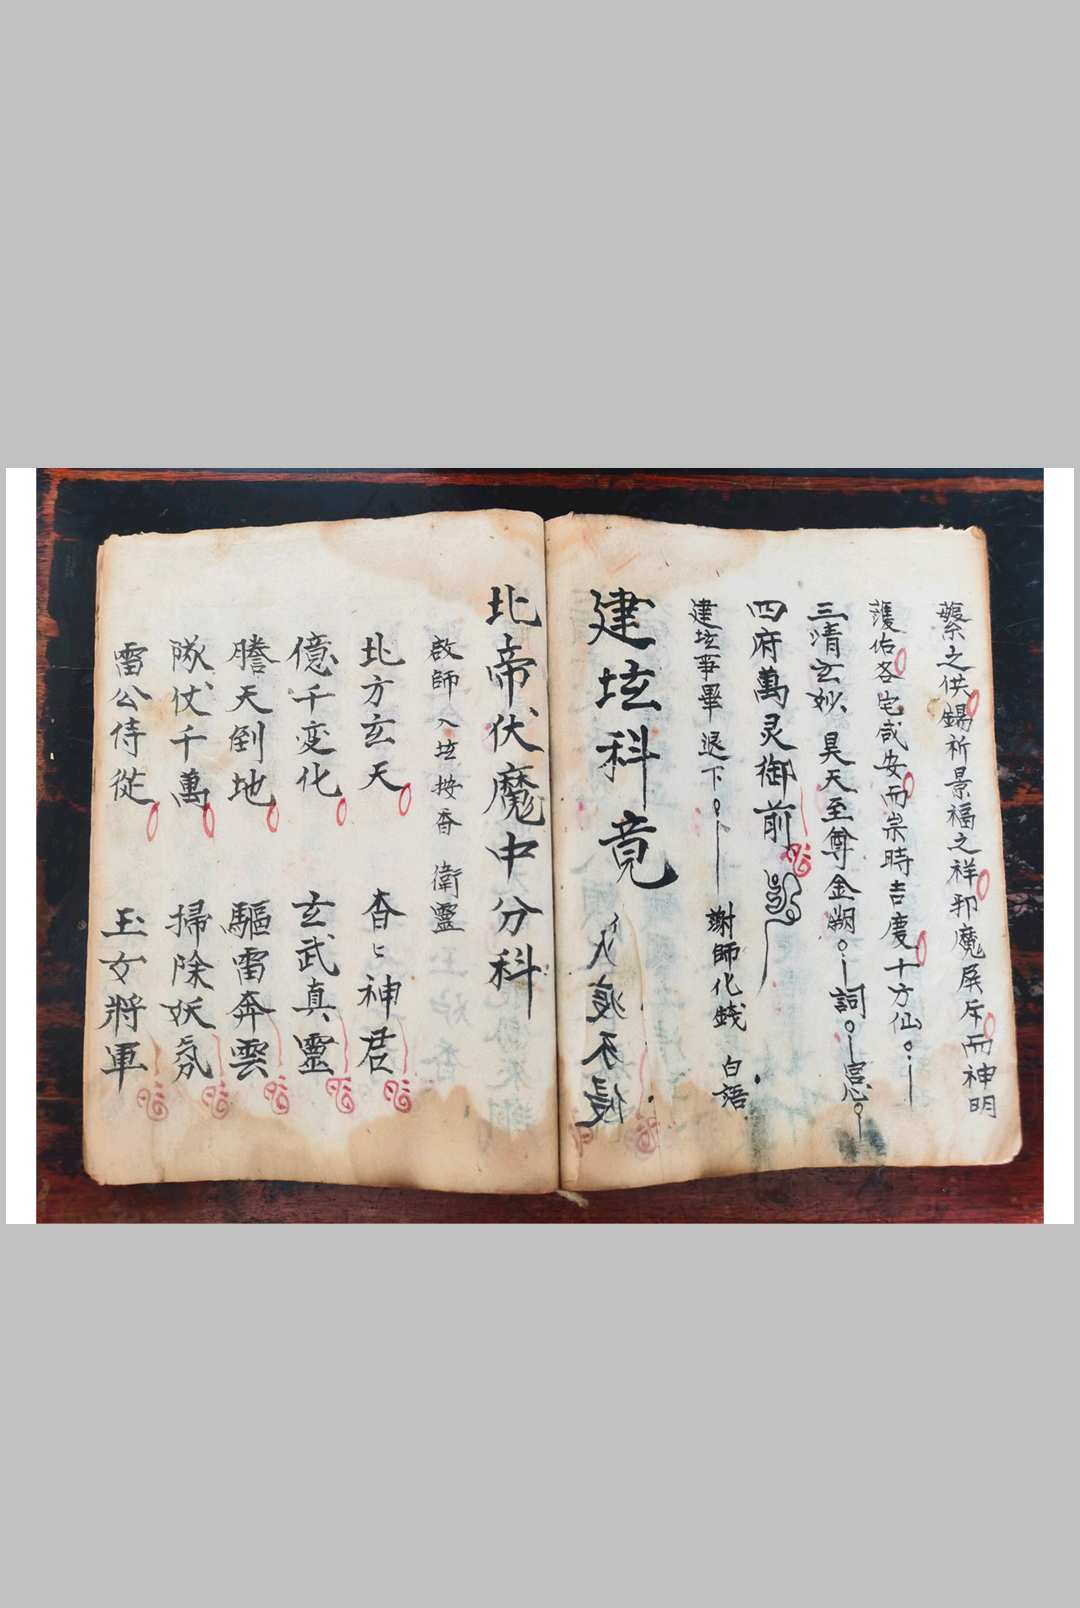 蘩之供錫祈景福之祥邪魔屏斥而神明
護佑各宅咸安而崇時吉慶十方仙
三清玄妙昊天至尊金㓪詞
四府萬灵御前
建坛事畢退下 謝師化錢 白語
建坛科竟
北帝伏魔中分科
啟師入坛按香 衛靈
北方玄天 杳〻神君
億千変化 玄武真靈
謄天倒地 驅雷奔雲
隊仗千萬 掃除妖氛
雷公侍從 玉女將軍